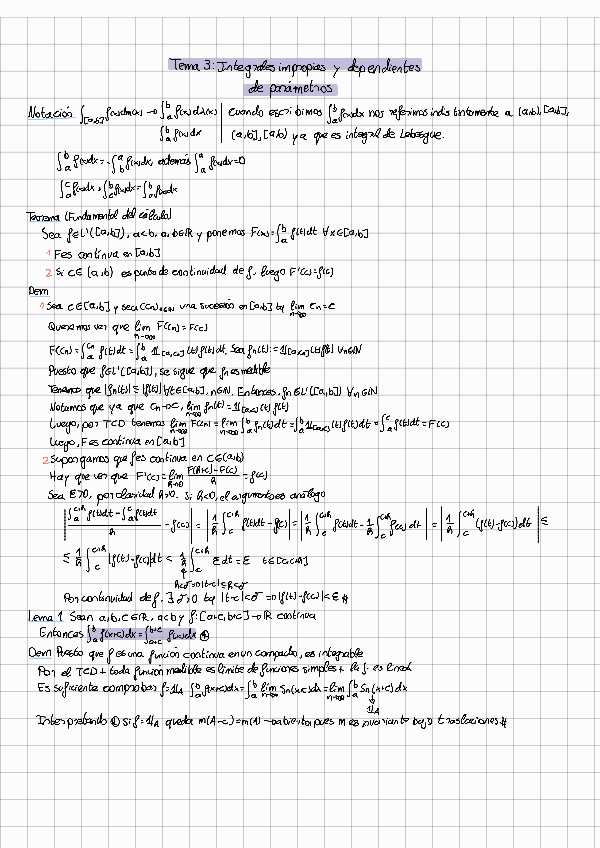 Tema 3: Integrales impropias y dependientes
de parámetros
Notación ∫_[a,b] f(x)dm(x) → ∫_a^b f(x)dλ(x) | Cuando escribimos ∫_a^b f(x)dx nos referimos indistintamente a (a,b), [a,b],
∫_a^b f(x)dx | (a,b], [a,b) ya que es integral de Lebesgue.
∫_a^b f(x)dx = -∫_b^a f(x)dx, además ∫_a^a f(x)dx=0
∫_a^c f(x)dx + ∫_c^b f(x)dx = ∫_a^b f(x)dx
Teorema (Fundamental del cálculo)
Sea f∈L¹([a,b]), a<b, a,b∈ℝ y ponemos F(x)=∫_a^b f(t)dt ∀x∈[a,b]
1 F es continua en [a,b]
2 Si c∈(a,b) es punto de continuidad de f, luego F'(c)=f(c)
Dem
1 Sea c∈[a,b] y sea (Cn)n∈ℕ una sucesión en [a,b] tq lim n→∞ Cn=c
Queremos ver que lim n→∞ F(Cn)=F(c)
F(Cn)=∫_a^Cn f(t)dt=∫_a^b 1_[a,Cn](t)f(t)dt. Sea fn(t):=1_[a,Cn](t)f(t) ∀n∈ℕ
Puesto que f∈L¹([a,b]), se sigue que fn es medible
Tenemos que |fn(t)|≤|f(t)| ∀t∈[a,b], n∈ℕ. Entonces, fn∈L¹([a,b]) ∀n∈ℕ
Notamos que ya que Cn→c, lim n→∞ fn(t)=1_[a,c](t)f(t)
Luego, por TCD tenemos lim n→∞ F(Cn)=lim n→∞ ∫_a^b fn(t)dt=∫_a^b 1_[a,c](t)f(t)dt=∫_a^c f(t)dt=F(c)
Luego, F es continua en [a,b]
2 Supongamos que f es continua en c∈(a,b)
Hay que ver que F'(c)=lim h→0 (F(h+c)-F(c))/h = f(c)
Sea ε>0, por claridad h>0. Si h<0, el argumento es análogo
|(∫_a^{c+h} f(t)dt-∫_a^c f(t)dt)/h - f(c)| = |1/h ∫_c^{c+h} f(t)dt-f(c)| = |1/h ∫_c^{c+h} f(t)dt-1/h ∫_c^{c+h} f(c)dt| = |1/h ∫_c^{c+h} (f(t)-f(c))dt| ≤
≤ 1/h ∫_c^{c+h} |f(t)-f(c)|dt < 1/h ∫_c^{c+h} ε dt=ε t∈[c,c+h]
h<δ⇒|t-c|≤h<δ
Por continuidad de f, ∃δ>0 tq |t-c|<δ⇒|f(t)-f(c)|<ε #
Lema 1 Sean a,b,c∈ℝ, a<b y f:[a+c,b+c]→ℝ continua
Entonces ∫_a^b f(x+c)dx=∫_{a+c}^{b+c} f(x)dx ①
Dem Puesto que f es una función continua en un compacto, es integrable
Por el TCD + toda función medible es límite de funciones simples + la ∫ es lineal
Es suficiente comprobar f=1_A ∫_a^b f(x+c)dx=∫_a^b lim n→∞ Sn(x+c)dx=lim n→∞ ∫_a^b Sn(x+c)dx
↓
1_A
Interpretando ① si f=1_A queda m(A-c)=m(A) → abierto pues m es invariante bajo traslaciones #